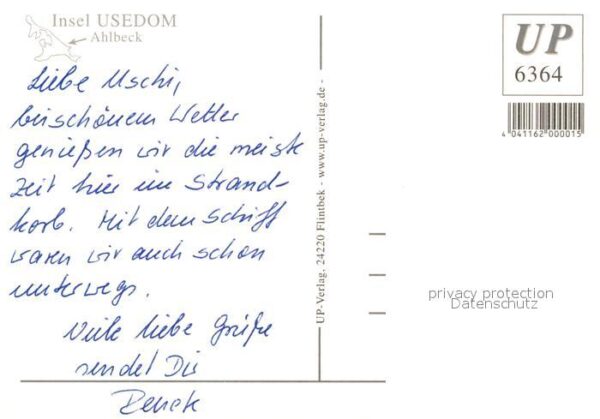 Insel USEDOM
Ahlbeck
Liebe Uschi,
bei schönem Wetter
genießen wir die meiste
Zeit hier im Strand-
korb. Mit dem Schiff
waren wir auch schon
unterwegs.
Viele liebe Grüße
sendet Dir
Renate
UP-Verlag, 24220 Flintbek - www.up-verlag.de -
UP
6364
4 041162 000015
privacy protection
Datenschutz